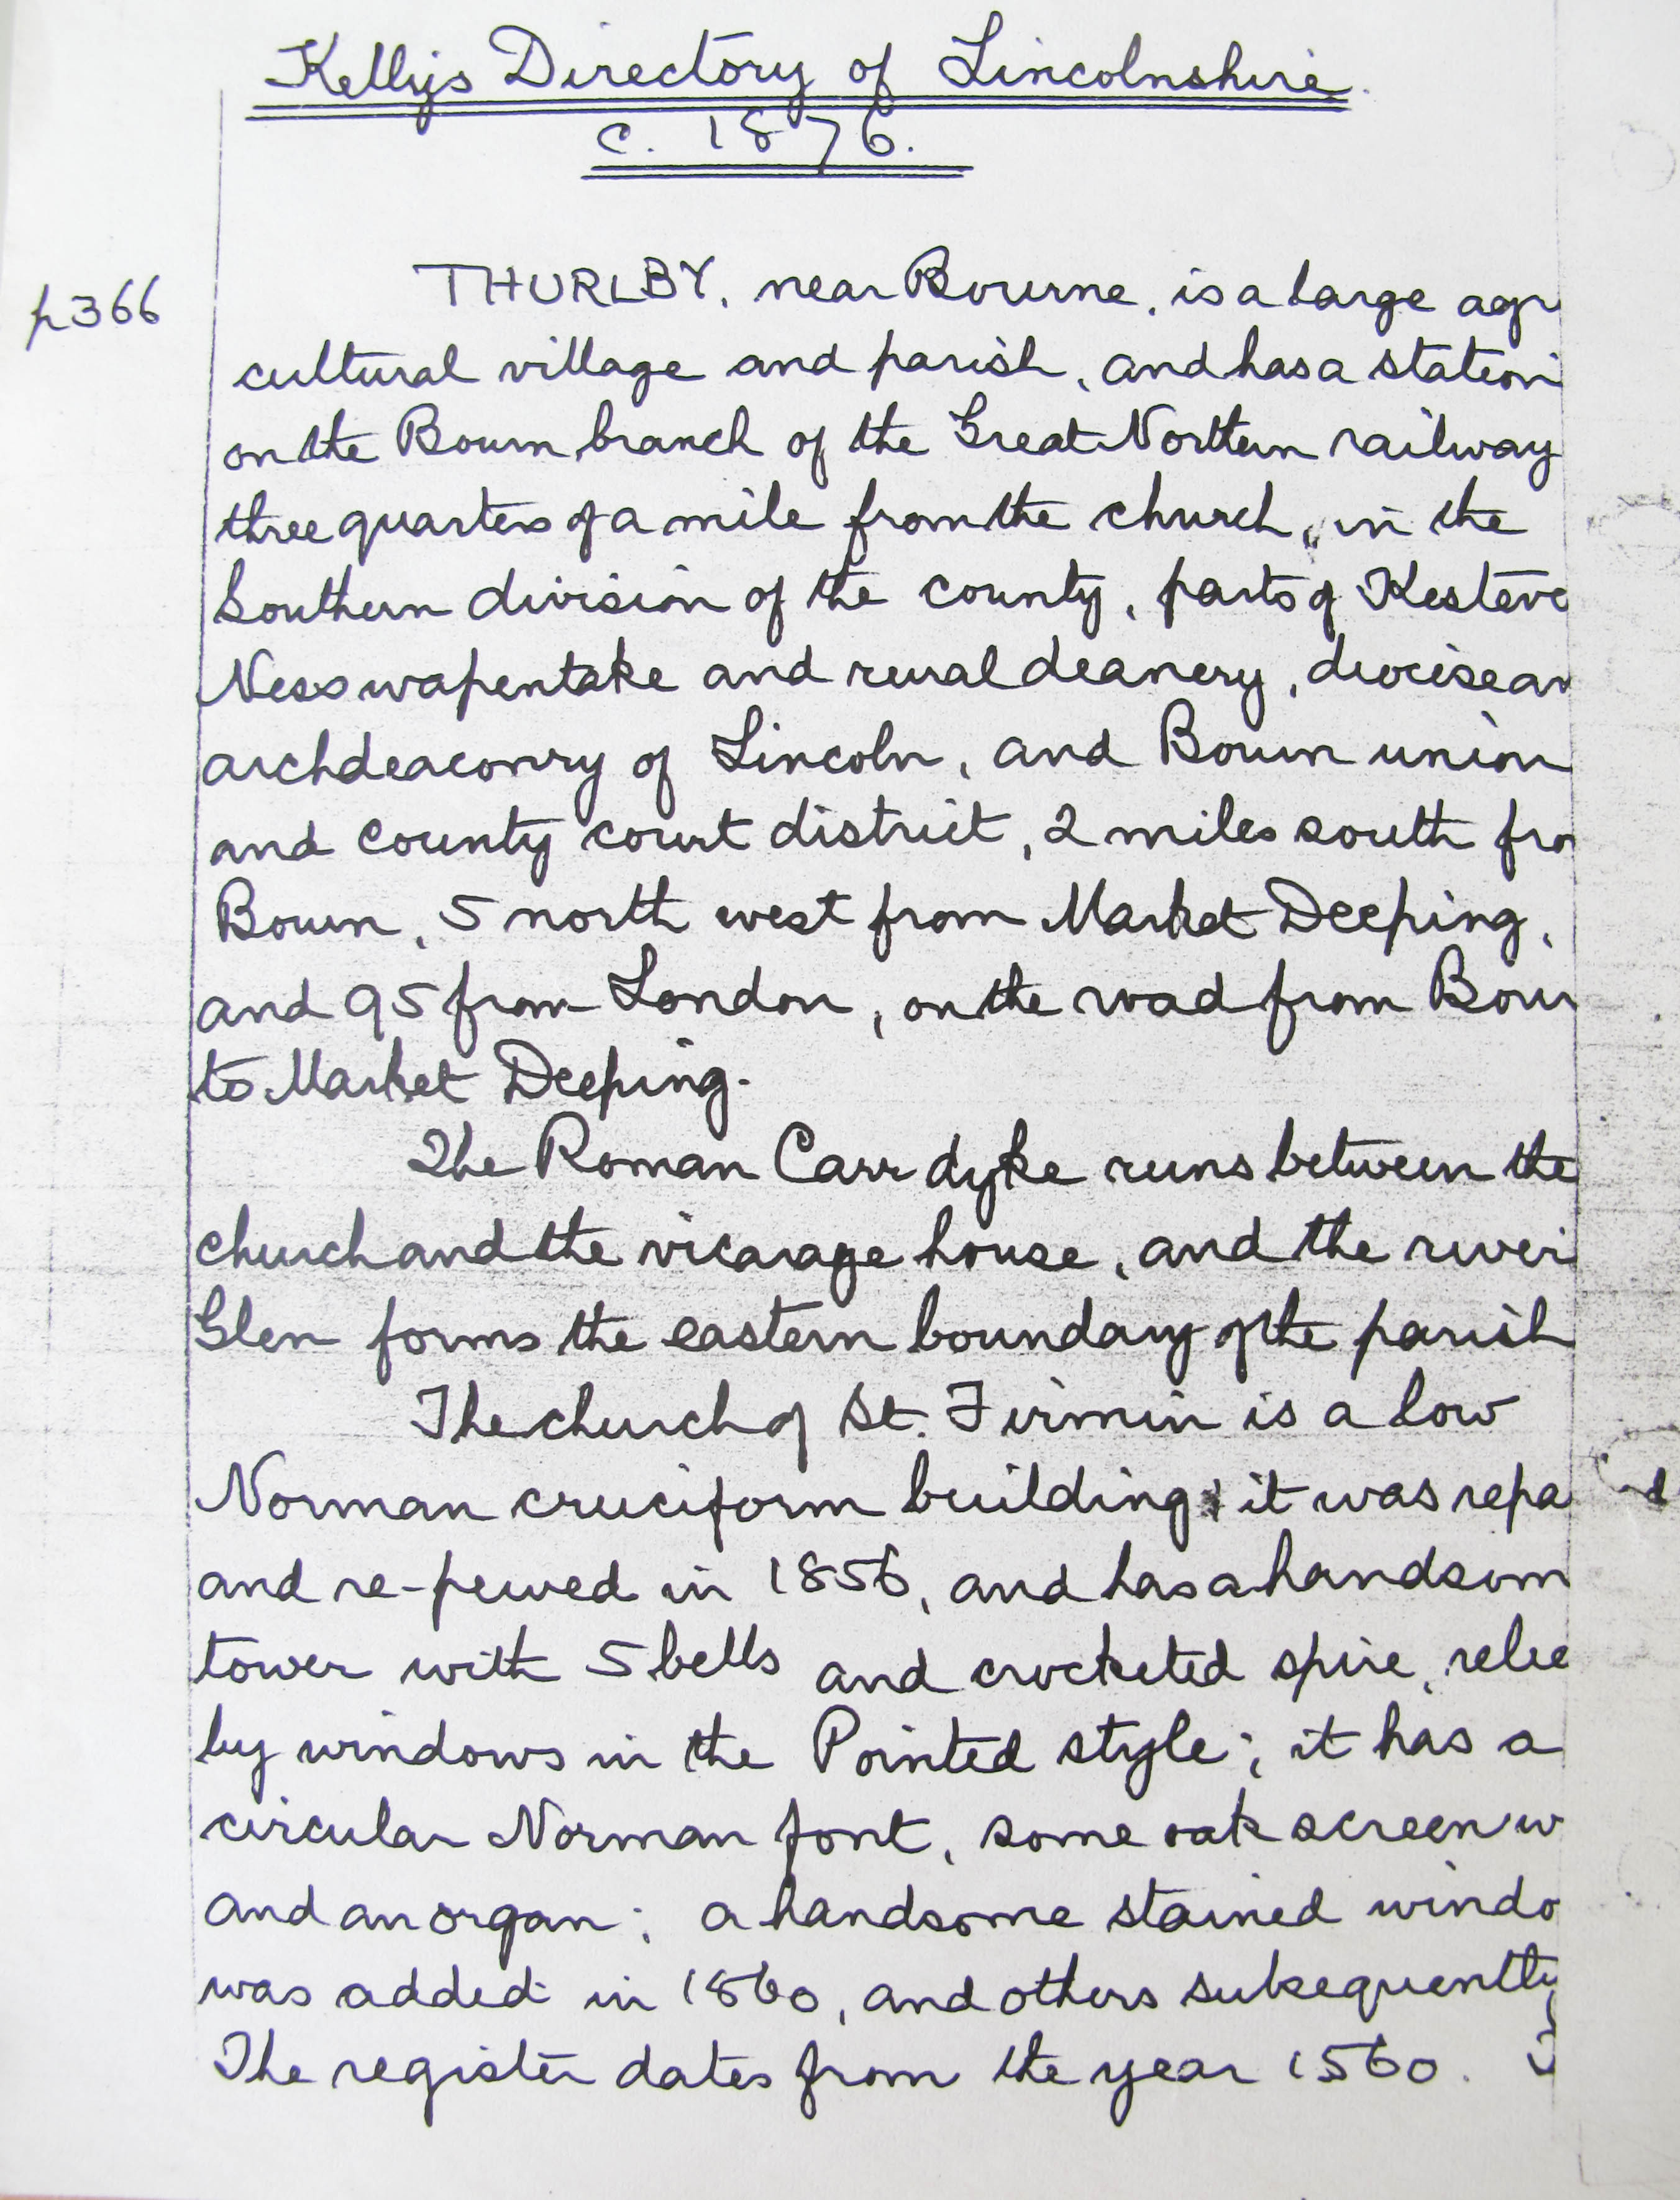 Kellys Directory of Lincolnshire.
c. 1876.
p366
THURLBY, near Bourne, is a large agr
cultural village and parish, and has a station
on the Bourn branch of the Great Northern railway
three quarters of a mile from the church, in the
Southern division of the county, parts of Ksteve
Ness wapentake and rural deanery, diocese an
archdeaconry of Lincoln, and Bourn union
and county court district, 2 miles south fro
Bourn, 5 north west from Market Deeping,
and 95 from London, on the road from Bour
to Market Deeping.
The Roman Carr dyke runs between the
church and the vicarage house, and the river
Glen forms the eastern boundary of the parish
The church of St. Firmin is a low
Norman cruciform building; it was repa
and re-pewed in 1856, and has a handsom
tower with 5 bells and crocketed spire, relie
by windows in the Pointed style; it has a
circular Norman font, some oak screen w
and an organ; a handsome stained windo
was added in 1860, and others subsequently
The register dates from the year 1560.